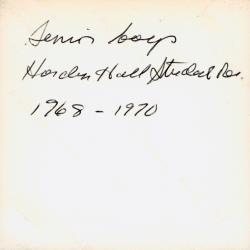 Senior boys
Horden Hall Student Res.
1968 - 1970